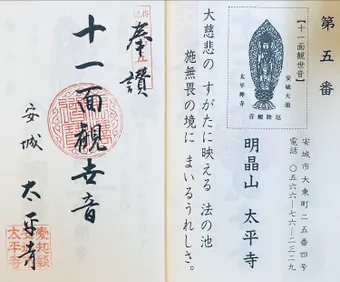 第五番
安城市大東町二五番四号
電話 〇五六六―七六―二三二九
【十一面観世音】
安城大仏
太平禅寺
明晶山 太平寺
大慈悲の すがたに映える 法の池
施無畏の境に まいるうれしさ。
奉讃
十一面観世音
安城 太平寺
愛知県
太平寺